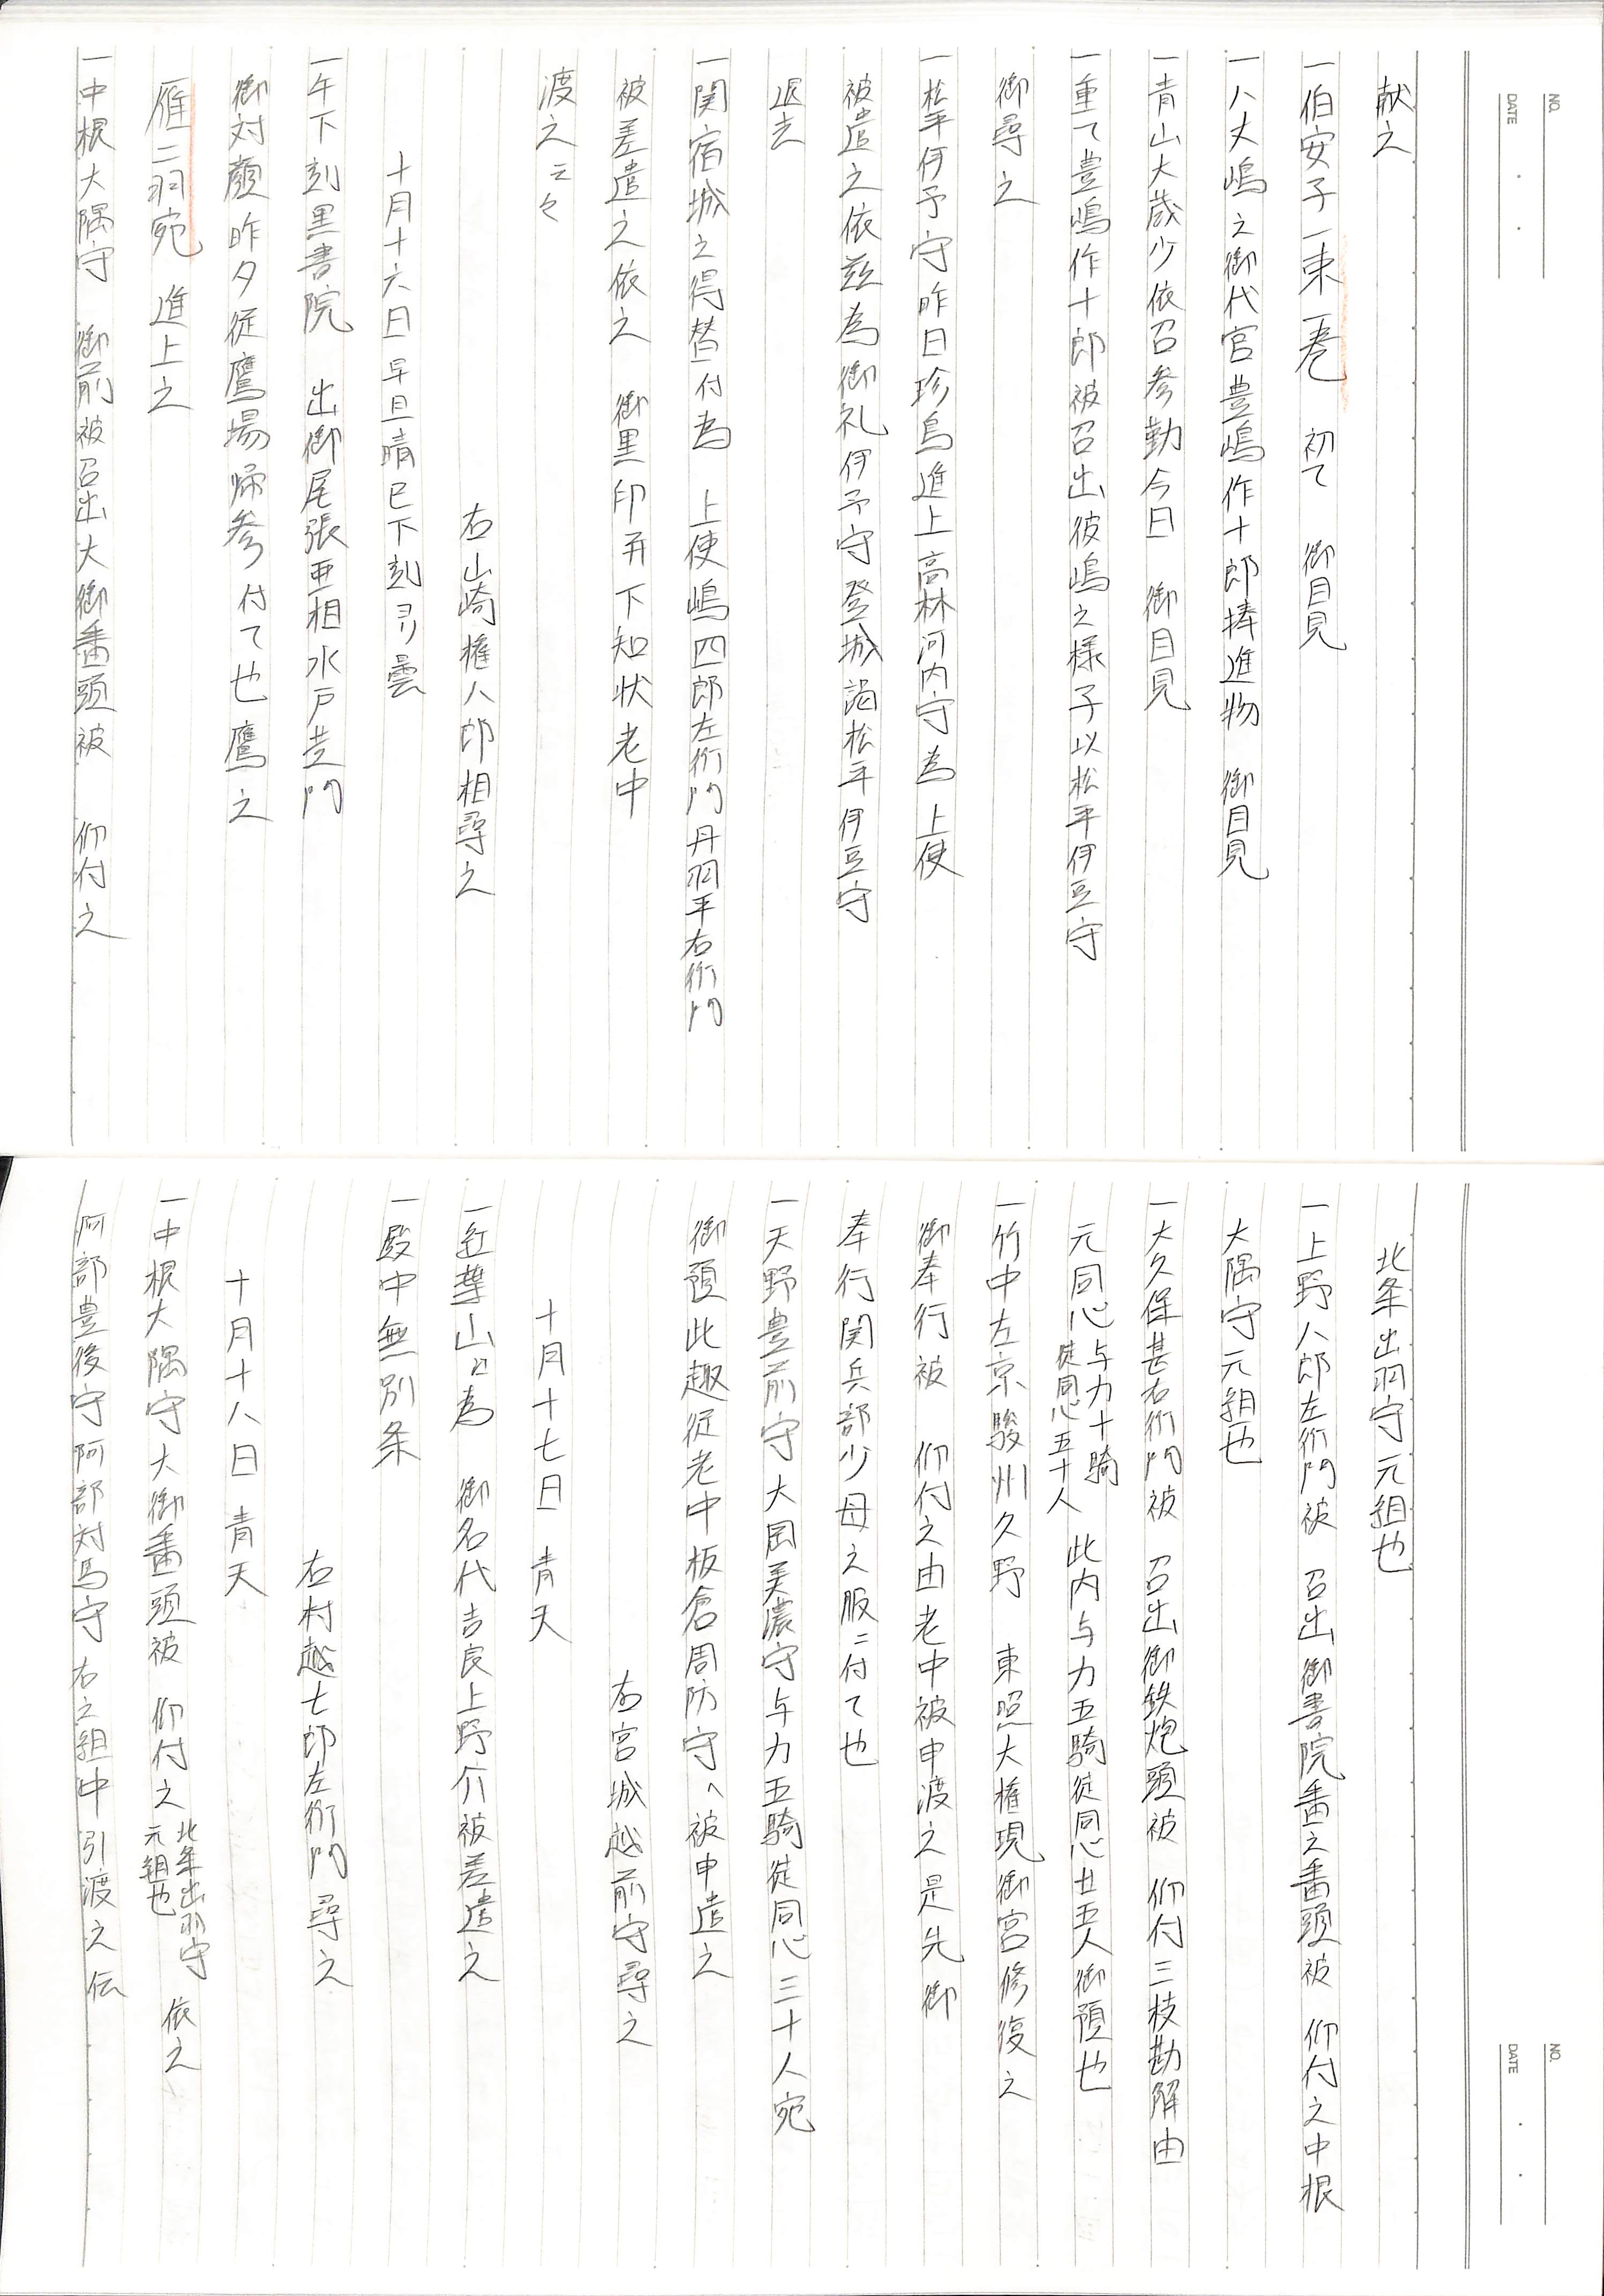 NO.
DATE
献之
一伯安子一束一巻 初て 御目見
一八丈嶋之御代官豊嶋作十郎捧進物 御目見
一青山大蔵少依召参勤今日 御目見
一重て豊嶋作十郎被召出彼嶋之様子以松平伊豆守
御尋之
一松平伊予守昨日珍鳥進上高林河内守為 上使
被遣之依茲為御礼伊予守登城謁松平伊豆守
退去
一関宿城之得替付為 上使嶋四郎左衛門丹羽平右衛門
被差遣之依之 御黒印并下知状老中
渡之云々
右山崎権八郎相尋之
十月十六日 早旦晴巳下刻ヨリ曇
一午下刻黒書院 出御尾張亜相水戸黄門
御対顔昨夕従鷹場帰参付て也鷹之
雁二羽宛 進上之
一中根大隅守 御前被召出大御番頭被 仰付之
NO.
DATE
北条出羽守元組也
一上野八郎左衛門被 召出御書院番之番頭被 仰付之中根
大隅守元組也
一大久保甚右衛門被 召出御鉄炮頭被 仰付三枝勘解由
元同心与力十騎徒同心五十人 此内与力五騎徒同心廿五人御預也
一竹中左京駿州久野 東照大権現御宮修復之
御奉行被 仰付之由老中被申渡之是先御
奉行関兵部少母之服ニ付て也
一天野豊前守大岡美濃守与力五騎徒同心三十人宛
御預此趣従老中板倉周防守へ被申遣之
右宮城越前守尋之
十月十七日 青天
一紅葉山江為 御名代吉良上野介被差遣之
一殿中無別条
右村越七郎左衛門尋之
十月十八日 青天
一中根大隅守大御番頭被 仰付之北条出羽守元組也 依之
阿部豊後守阿部対馬守右之組中引渡之伝